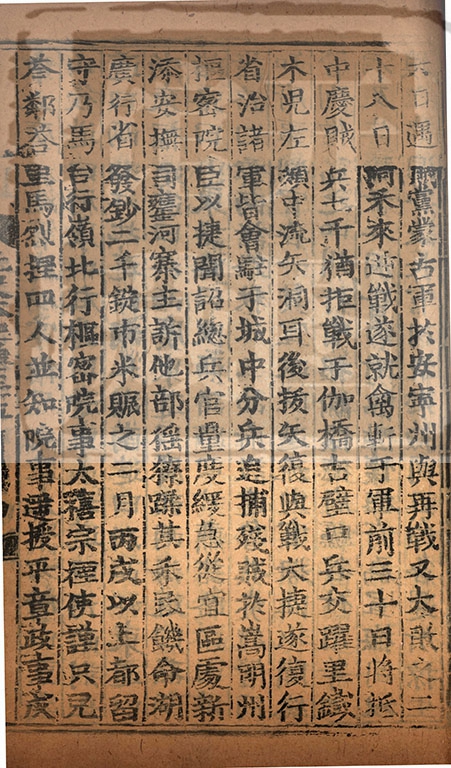 六日遇賊黨蒙古軍於安寧州與再戰又大敗之二
十八日洞禾來迎戰遂就禽斬于軍前三十日將抵
中慶賊兵七千猶拒戰于伽橋古壁口兵交躍里鐵
木兒左頰中流矢洞耳後拔矢復與戰大捷遂復行
省治諸軍皆會駐于城中分兵追捕殘賊於嵩明州
樞密院臣以捷聞詔總兵官量度緩急從宜區處新
添安撫司甕河寨主訴他部徭獠蹂其禾民饑命湖
廣行省發鈔二千錠市米賑之二月丙戌以上都留
守乃馬台行嶺北行樞密院事太禧宗禋使謹只兒
荅鄰荅里馬烈捏四人並知院事遥授平章政事度